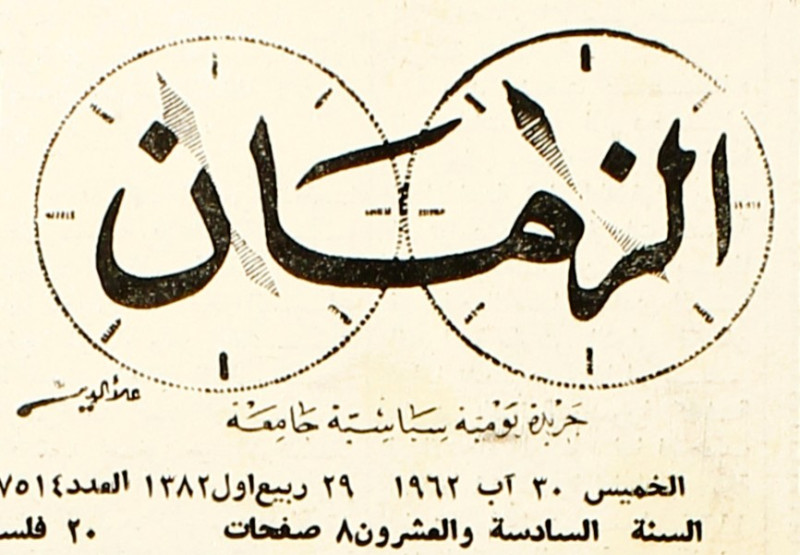 الزمان
علاء الدين
جريدة يومية سياسية جامعة
الخميس ٣٠ آب ١٩٦٢ ٢٩ ربيع اول ١٣٨٢ العدد ٧٥١٤
السنة السادسة والعشرون ٨ صفحات ٢٠ فلس